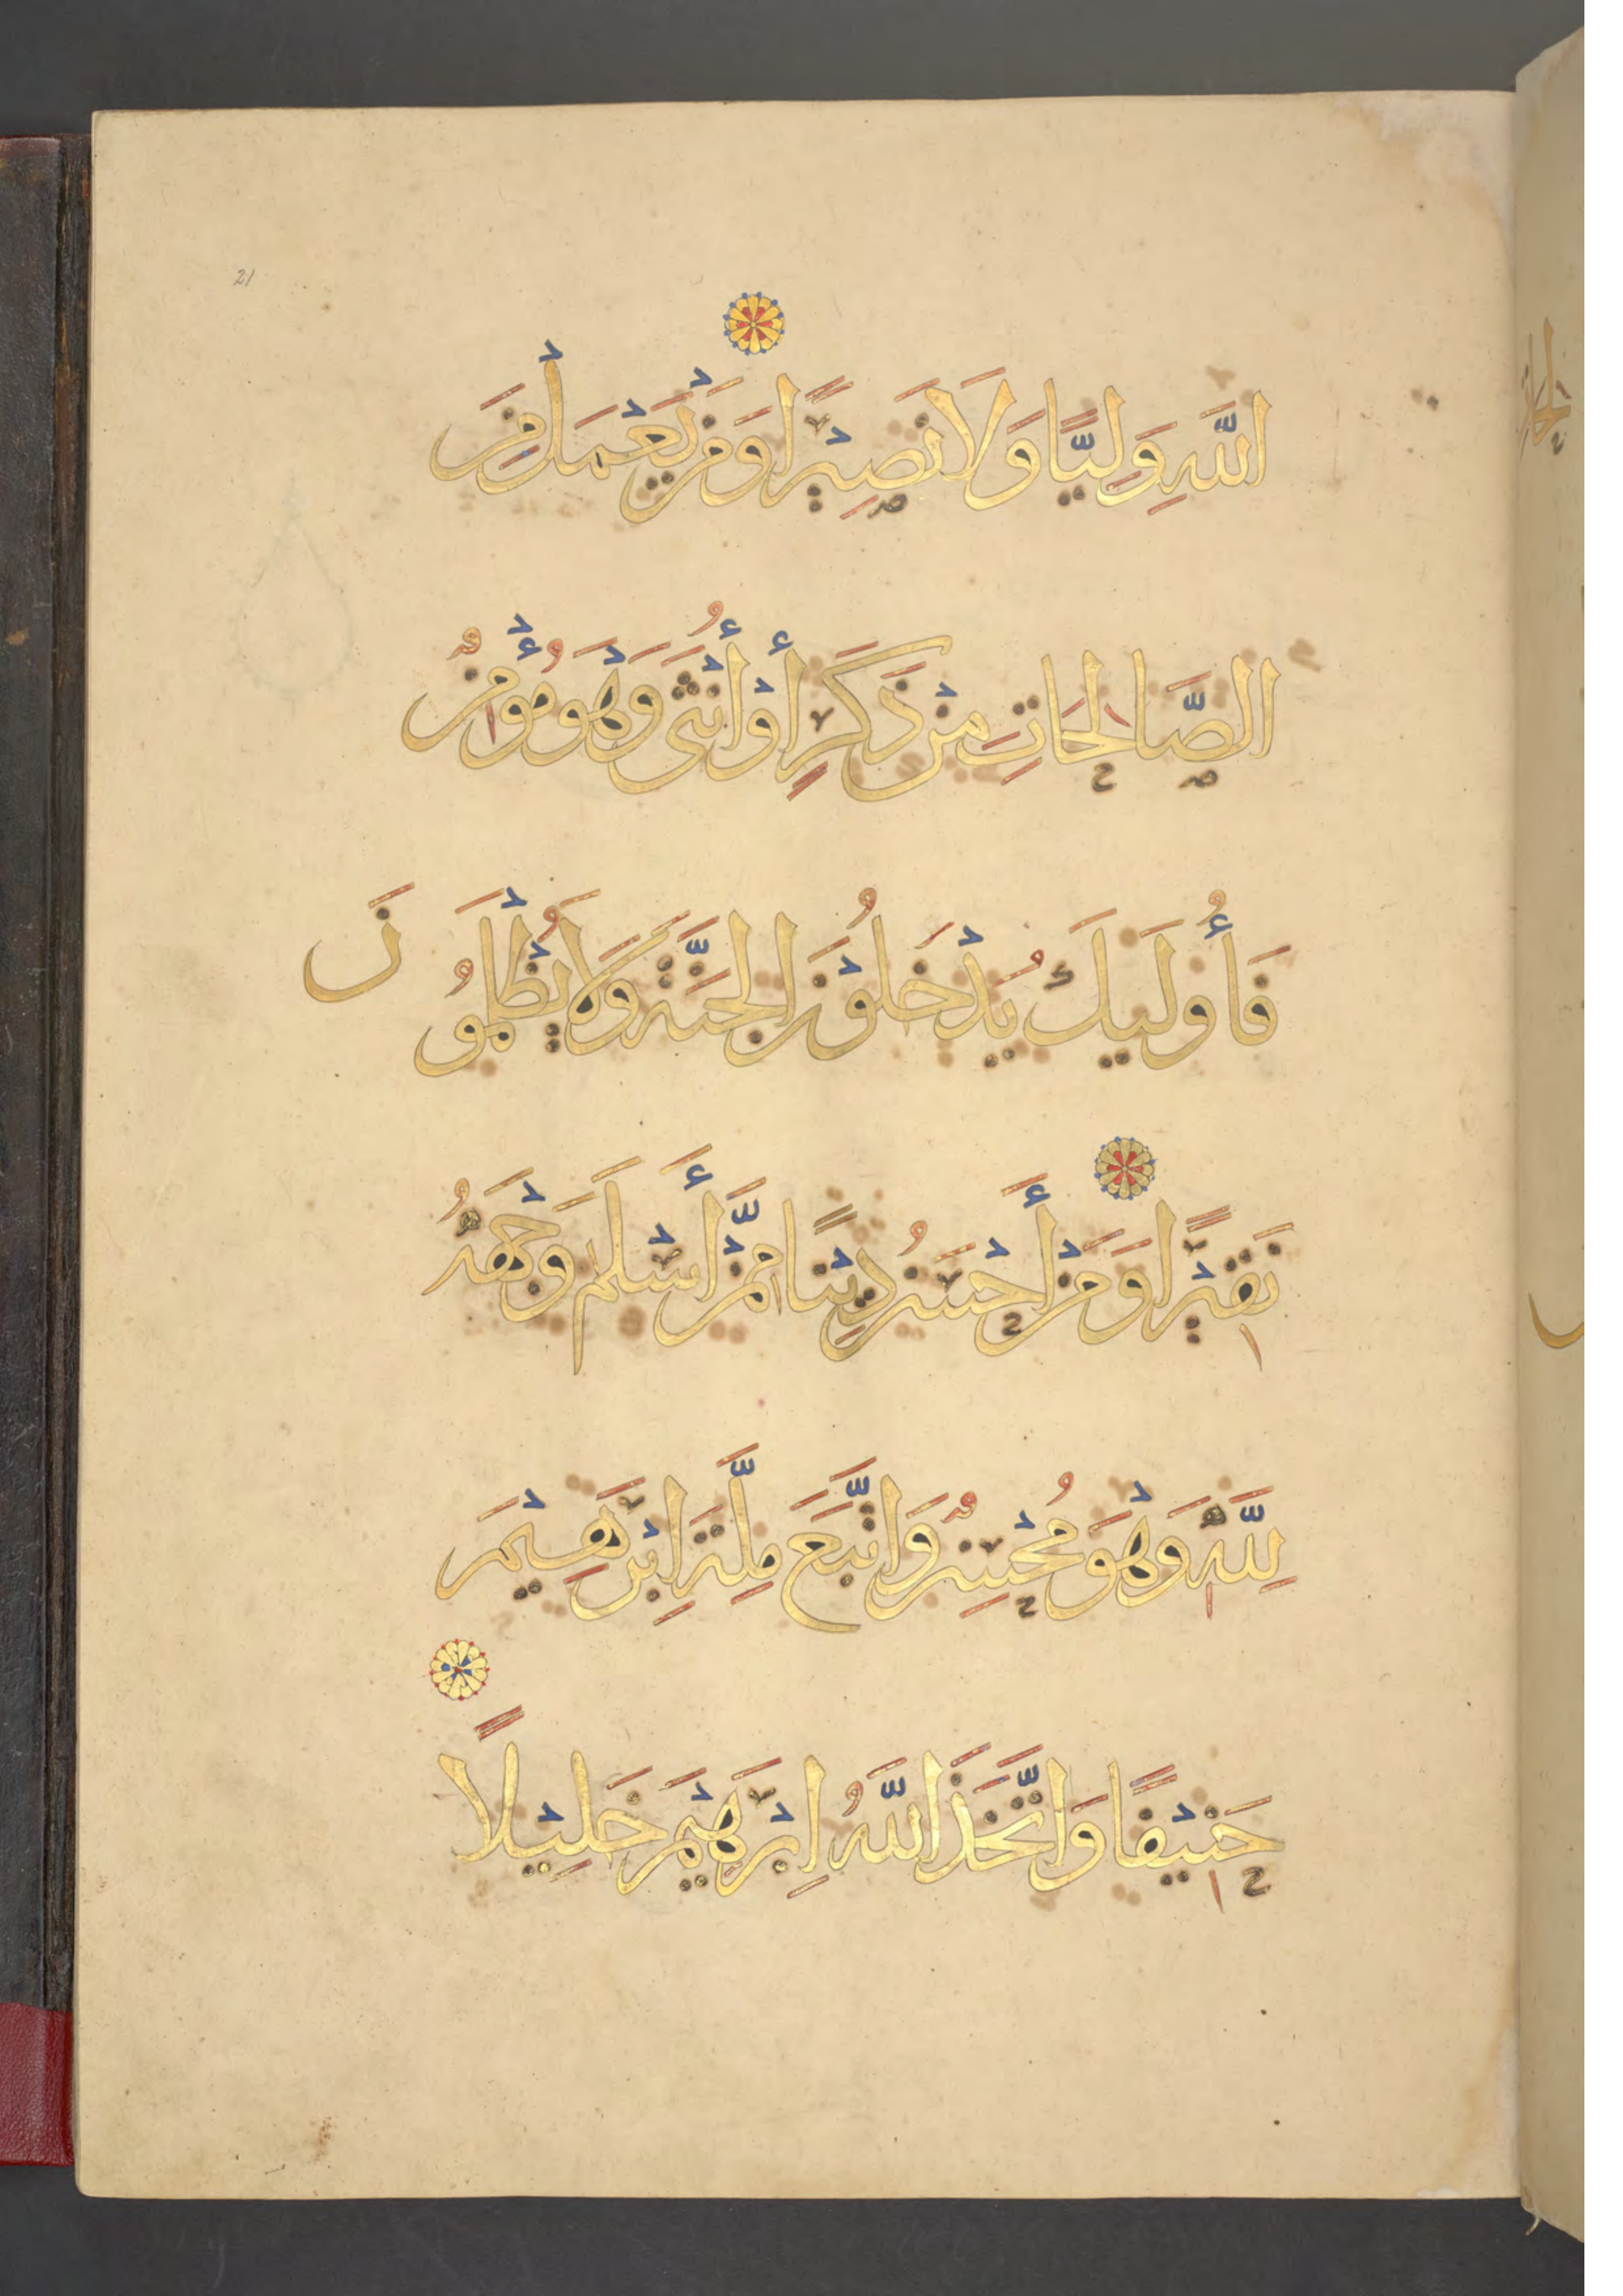 21
اللَّهِ وَلِيًّا وَلَا نَصِيْرًا وَمَنْ يَعْمَلْ مِنَ
الصَّالِحَاتِ مِنْ ذَكَرٍ أَوْ أُنْثَى وَهْوَ مُؤْمِنٌ
فَأُولَئِكَ يُدْخَلُوْنَ الْجَنَّةَ وَلَا يُظْلَمُونَ
نَقِيْرًا وَمَنْ أَحْسَنُ دِيْنًا مِمَّنْ أَسْلَمَ وَجْهَهُ
لِلَّهِ وَهْوَ مُحْسِنٌ وَاتَّبَعَ مِلَّةَ إِبْرَهِيْمَ
حَنِيْفًا وَاتَّخَذَ اللَّهُ إِبْرَهِيْمَ خَلِيْلًا